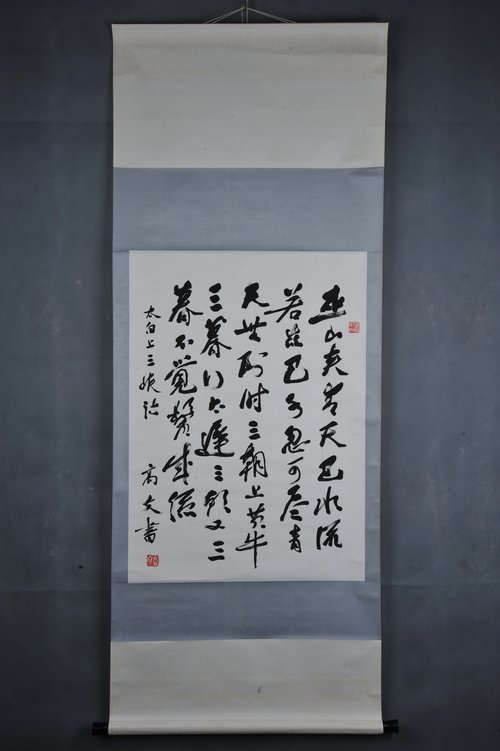 巫山夹青天巴水流
若兹巴水忽可尽青
天無到时三朝上黄牛
三暮行太遲三朝又三
暮不覺鬢成絲
太白上三峡诗
高文書